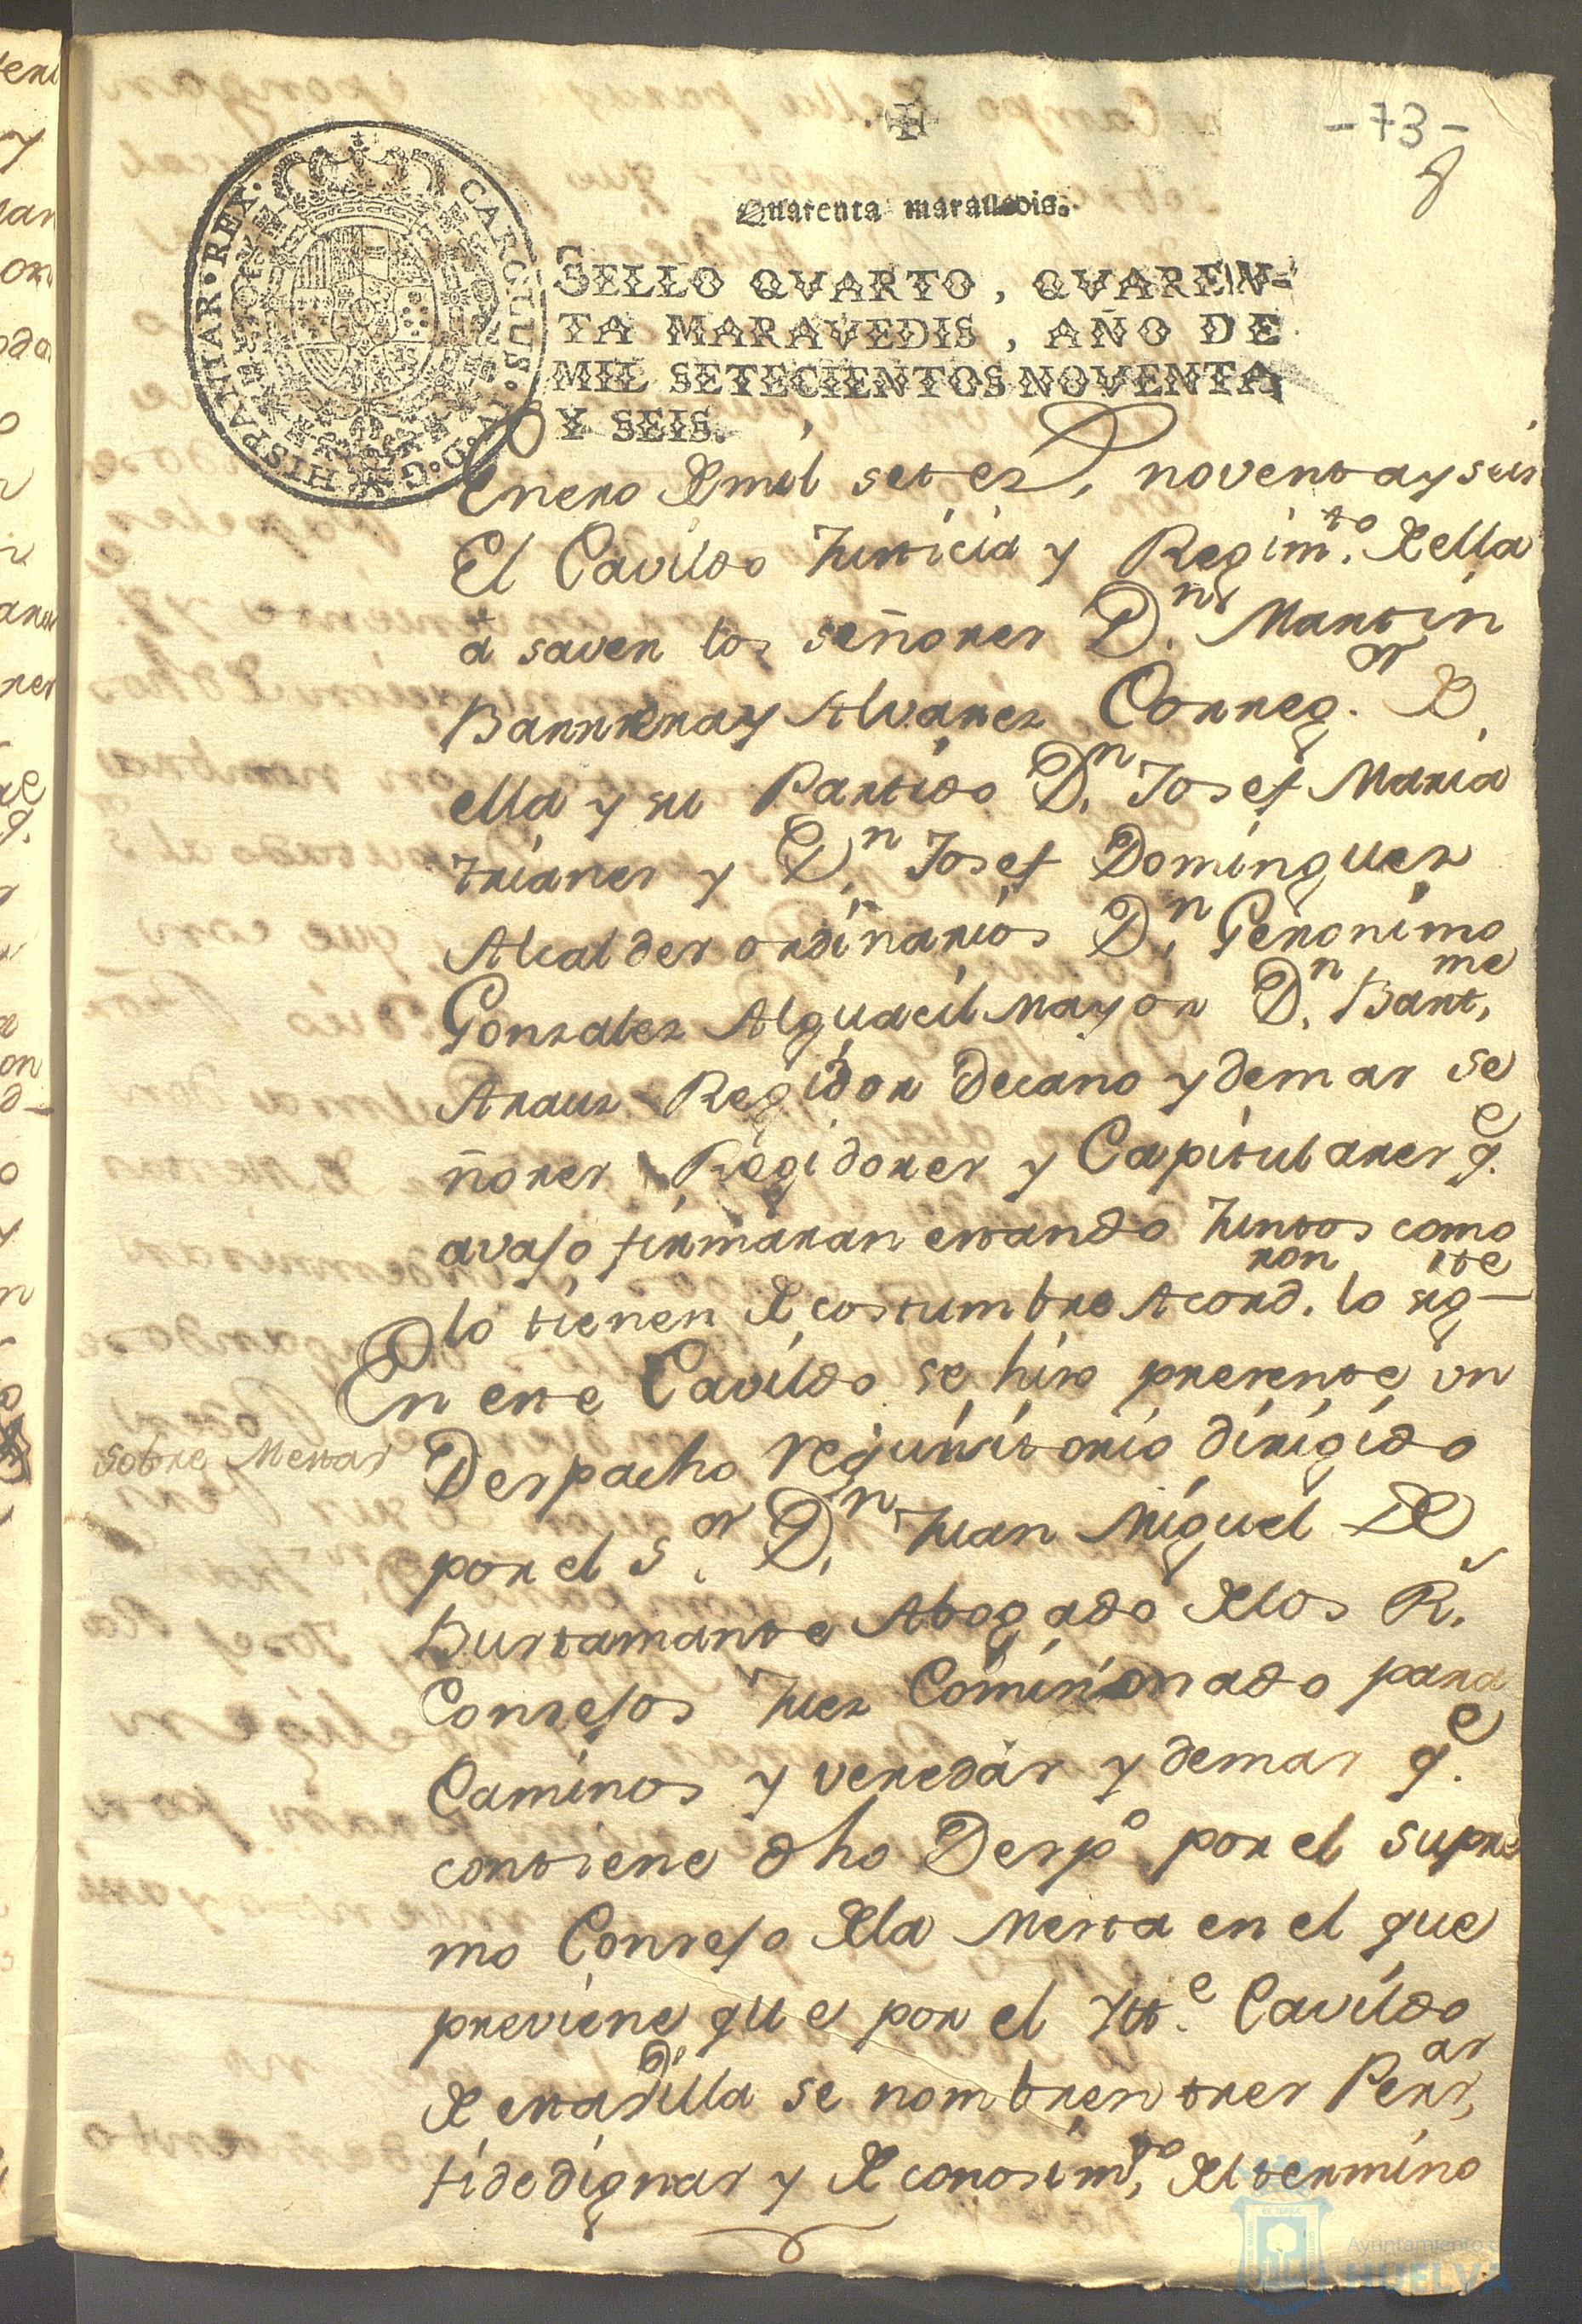 -73-
Quarenta maravedis.
CAROLUS. IV. D. G. HISPANIAR. REX.
SELLO QVARTO, QVAREN-
TA MARAVEDIS, AÑO DE
MIL SETECIENTOS NOVENTA
Y SEIS.
Enero de mil setez.s noventa y seis
El Cavildo Justicia y Regim.to de ella
a saver los señores D.n Martin
Barrera y Alvarez Correg.or de
ella y su Partido D.n Josef Maria
Trianes y D.n Josef Dominguez
Alcaldes ordinarios D.n Geronimo
Gonzalez Alguacil mayor D.n Bart.me
Arauz Regidor Decano y demas se
ñores Regidores y Capitulares q.e
avajo firmaran estando juntos como
lo tienen de costumbre Acord.ron lo sig-ite
En este Cavildo se hizo presente un
Sobre Mestas
Despacho requisitorio dirigido
por el S.or D.n Juan Miguel de
Bustamante Abogado de los R.s
Consejos Juez Comisionado para
Caminos y veredas y demas q.e
contiene dho Desp.o por el supre
mo Consejo de la Mesta en el que
previene que por el Ytt.e Cavildo
de esta villa se nombren tres Pers.as
fidedignas y de conosim.to del termino
Ayuntamiento de
HUELVA